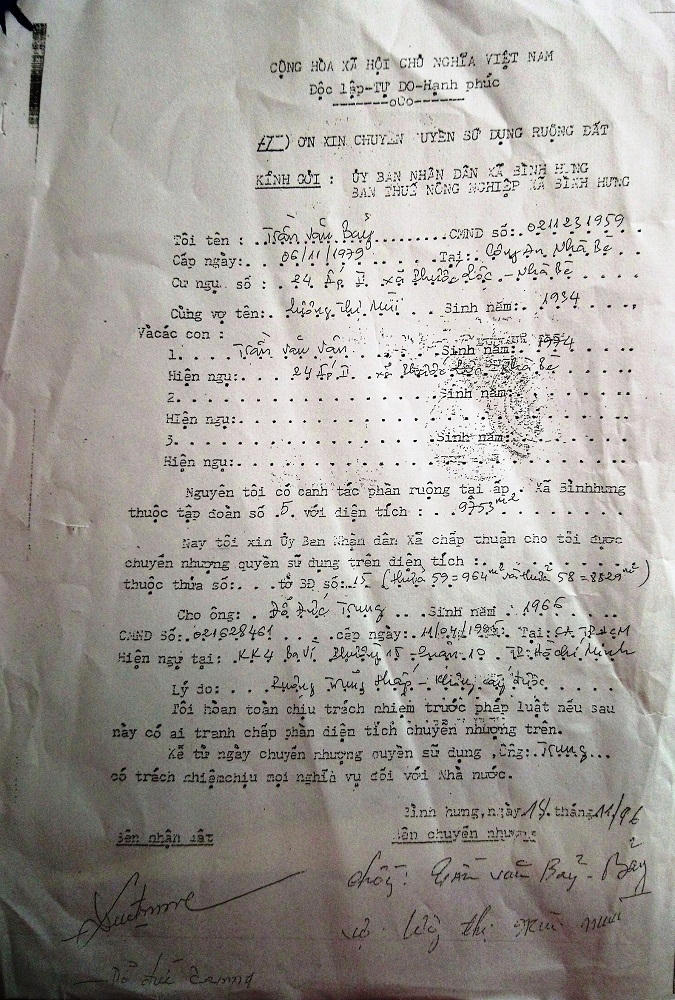 CỘNG HÒA XÃ HỘI CHỦ NGHĨA VIỆT NAM
Độc lập-TỰ DO-Hạnh phúc
-------o0o------
ƠN XIN CHUYỂN QUYỀN SỬ DỤNG RUỘNG ĐẤT
KÍNH GỬI : ỦY BAN NHÂN DÂN XÃ BÌNH HƯNG
BAN THUẾ NÔNG NGHIỆP XÃ BÌNH HƯNG
Tôi tên : Trần văn Bảy CMND số: 0211231959
Cấp ngày: 06/11/1979 Tại: Công An Nhà Bè
Cư ngụ số : 24 Ấp II xã Phước Lộc - Nhà Bè
Cùng vợ tên: Thị Mùi Sinh năm: 1934
Và các con :
1. Trần văn Vân Sinh năm:
Hiện ngụ: 24 Ấp II xã Phước Lộc Nhà Bè
2. Sinh năm:
Hiện ngụ:
3. Sinh năm:
Hiện ngụ:
Nguyên tôi có canh tác phần ruộng tại ấp . Xã Bìnhhưng
thuộc tập đoàn số .5. với diện tích : 9753m2
Nay tôi xin Ủy Ban Nhân dân Xã chấp thuận cho tôi được
chuyển nhượng quyền sử dụng trên diện tích :
thuộc thửa số: tờ BĐ số: 15 (thửa 59=964m2 và thửa 58=8829m2)
Cho ông: Đỗ Đức Trung Sinh năm : 1966
CMND Số: 021628461 cấp ngày: Tại: CA TP HCM
Hiện ngụ tại: KK4 Ba Vì Phường 15 - Quận 10 TP. Hồ Chí Minh
Lý do: Ruộng Trũng thấp - không cấy được
Tôi hoàn toàn chịu trách nhiệm trước pháp luật nếu sau
này có ai tranh chấp phần diện tích chuyển nhượng trên.
Kể từ ngày chuyển nhượng quyền sử dụng ,Ông: Trung...
có trách nhiệmchịu mọi nghĩa vụ đối với Nhà nước.
Bình hưng,ngày 14 tháng 11/96
Bên nhận đất Bên chuyển nhượng
chồng: Trần văn Bảy - Bảy
vợ: thị Mùi mùi
Đỗ đức Trung